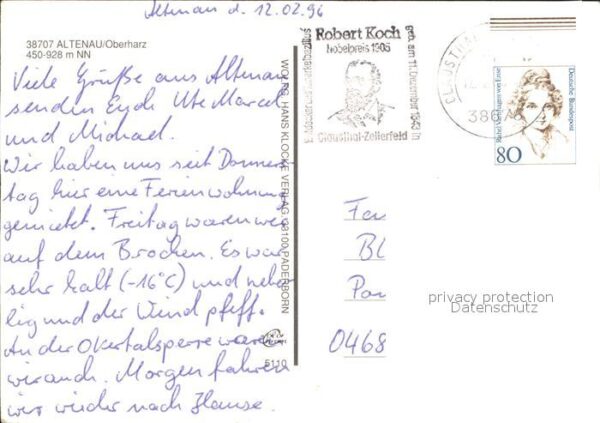 Altenau d. 12.02.96
38707 ALTENAU/Oberharz
450-928 m NN
Viele Grüße aus Altenau
senden Euch Ute Marcel
und Michael.
Wir haben uns seit Donners
tag hier eine Ferienwohnung
gemietet. Freitag waren wir
auf dem Brocken. Es war
sehr kalt (-16°C) und nebe
lig und der Wind pfeff.
An der Okertalsperre waren
wir auch. Morgen fahren
wir wieder nach Hause.
WOLFG. HANS KLOCKE VERLAG 33100 PADERBORN
5110
Robert Koch
Nobelpreis 1905
geb. am 11. Dezember 1843 in
Clausthal-Zellerfeld
38678
Deutsche Bundespost
Rahel Varnhagen von Ense
80
Fa
Bl
Pa
0468
privacy protection
Datenschutz